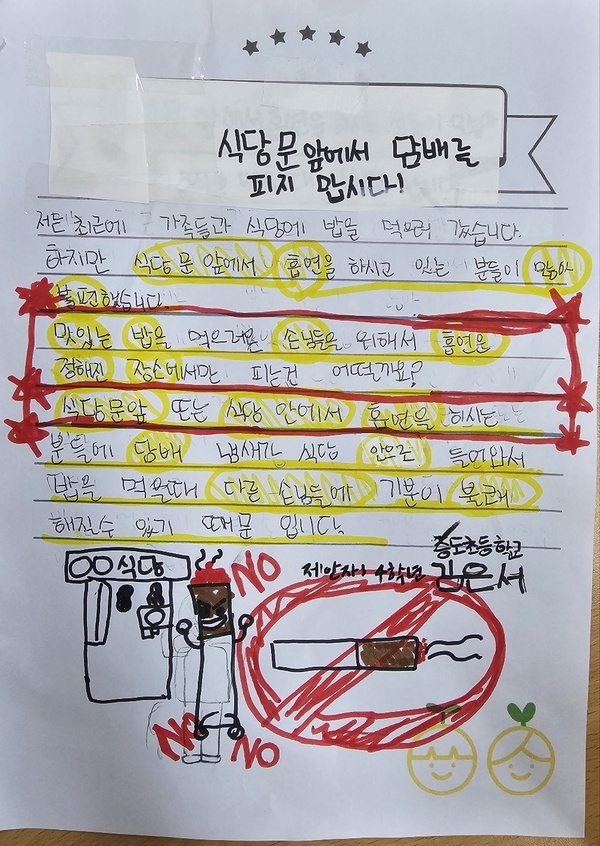 식당 문 앞에서 담배를
피지 맙시다!
저는 최근에 가족들과 식당에 밥을 먹으러 갔습니다.
하지만 식당 문 앞에서 흡연을 하시고 있는 분들이 많아
불편했습니다
맛있는 밥을 먹으려온 손님들을 위해서 흡연은
정해진 장소에서만 피는건 어떨까요?
식당문앞 또는 식당 안에서 흡연을 하시는
분들에 담배 냄새가 식당 안으로 들어와서
밥을 먹을때 다른 손님들에 기분이 불쾌
해질수 있기 때문 입니다.
증도초등학교
제안자: 4학년 김은서
○○식당
NO
NO
NO